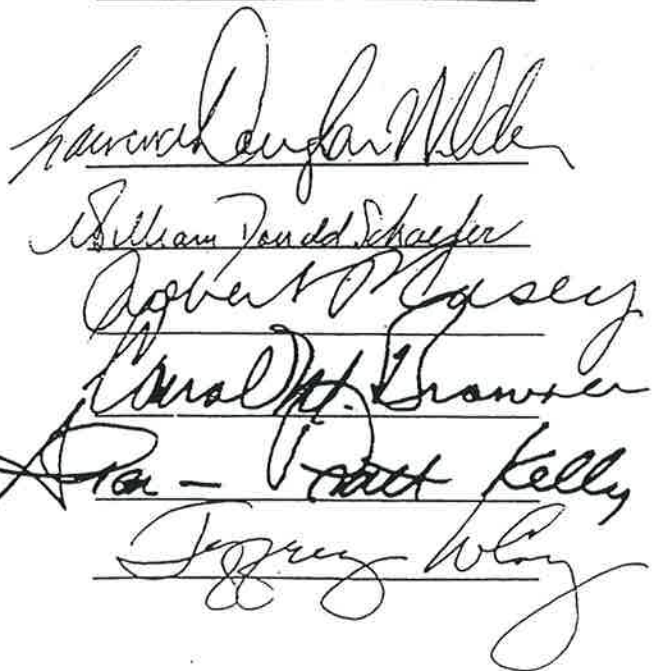 Lawrence Douglas Wilder
William Donald Schaefer
Robert P Casey
Carol M. Browner
Sharon Pratt Kelly
Jeffrey W Coy